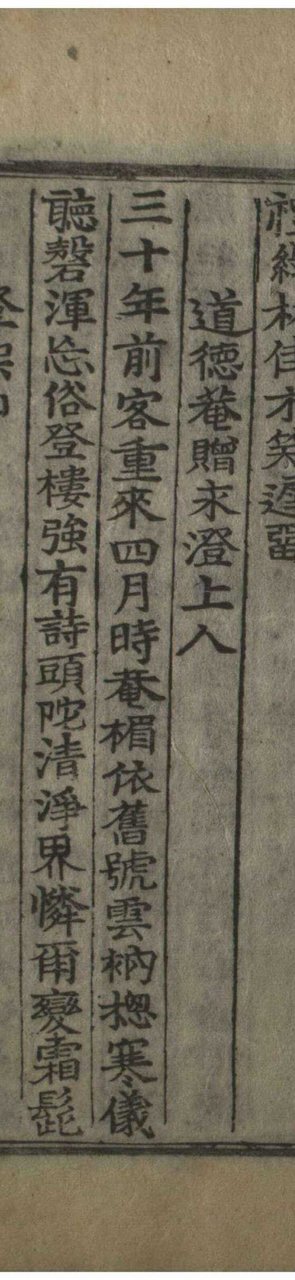 道德菴贈末澄上人
三十年前客重來四月時菴楣依舊號雲衲揔寒儀
聽磬渾忘俗登樓強有詩頭陀清淨界憐爾變霜髭